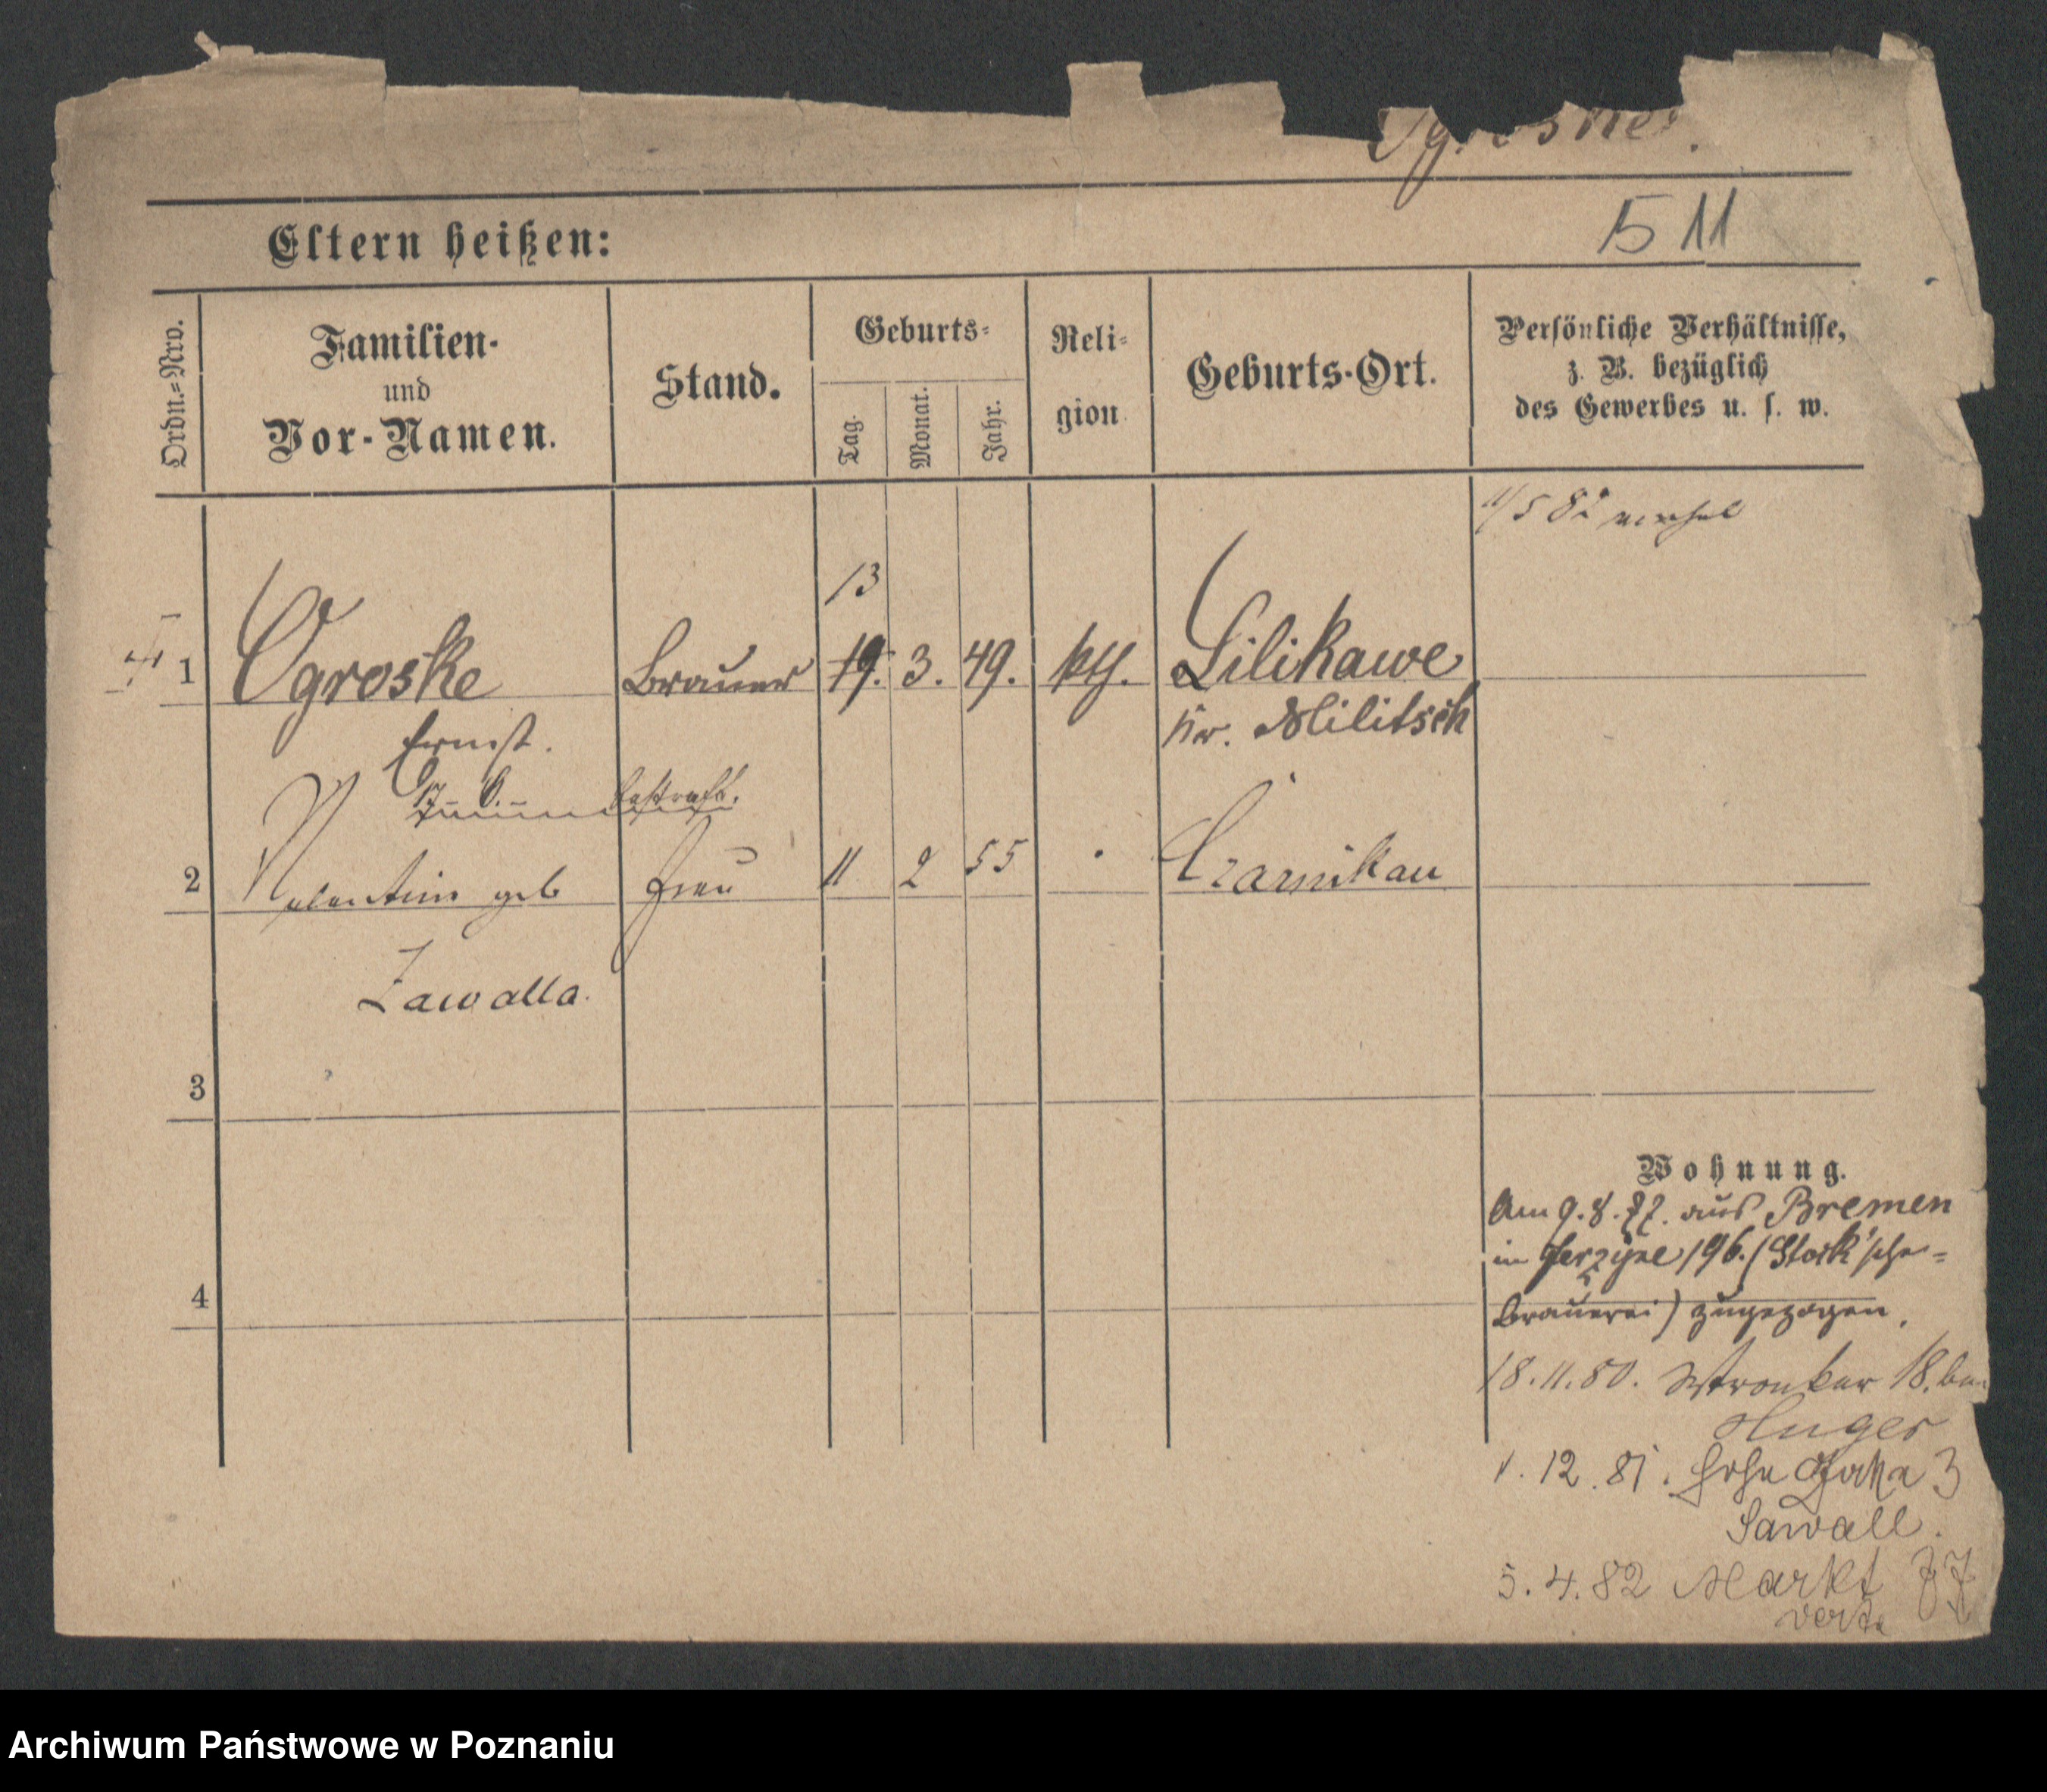 Ogroske.
511
Eltern heißen:
Ordn.-Nro.
Familien-
und
Vor-Namen.
Stand.
Geburts-
Tag.
Monat.
Jahr.
Reli-
gion
Geburts-Ort.
Persönliche Verhältnisse,
z. B. bezüglich
des Gewerbes u. s. w.
11/5 82
13
1 Ogroske Brauer 19. 3. 49. kth. Lilikawe
Ernst. Kr. Militsch
bestraft.
2 Valentine geb Frau 11 2 55 Czarnikau
Zawalla.
3
4
Wohnung.
Am 9. 8. 77. aus Bremen
in Jerzyce 196. (Stock'sche-
Brauerei) zugezogen.
18. 11. 80. Wronker 18. bei
Huger
1. 12. 81. Hohe Gasse 3
Sawall.
5. 4. 82 Markt 77
verte
Archiwum Państwowe w Poznaniu